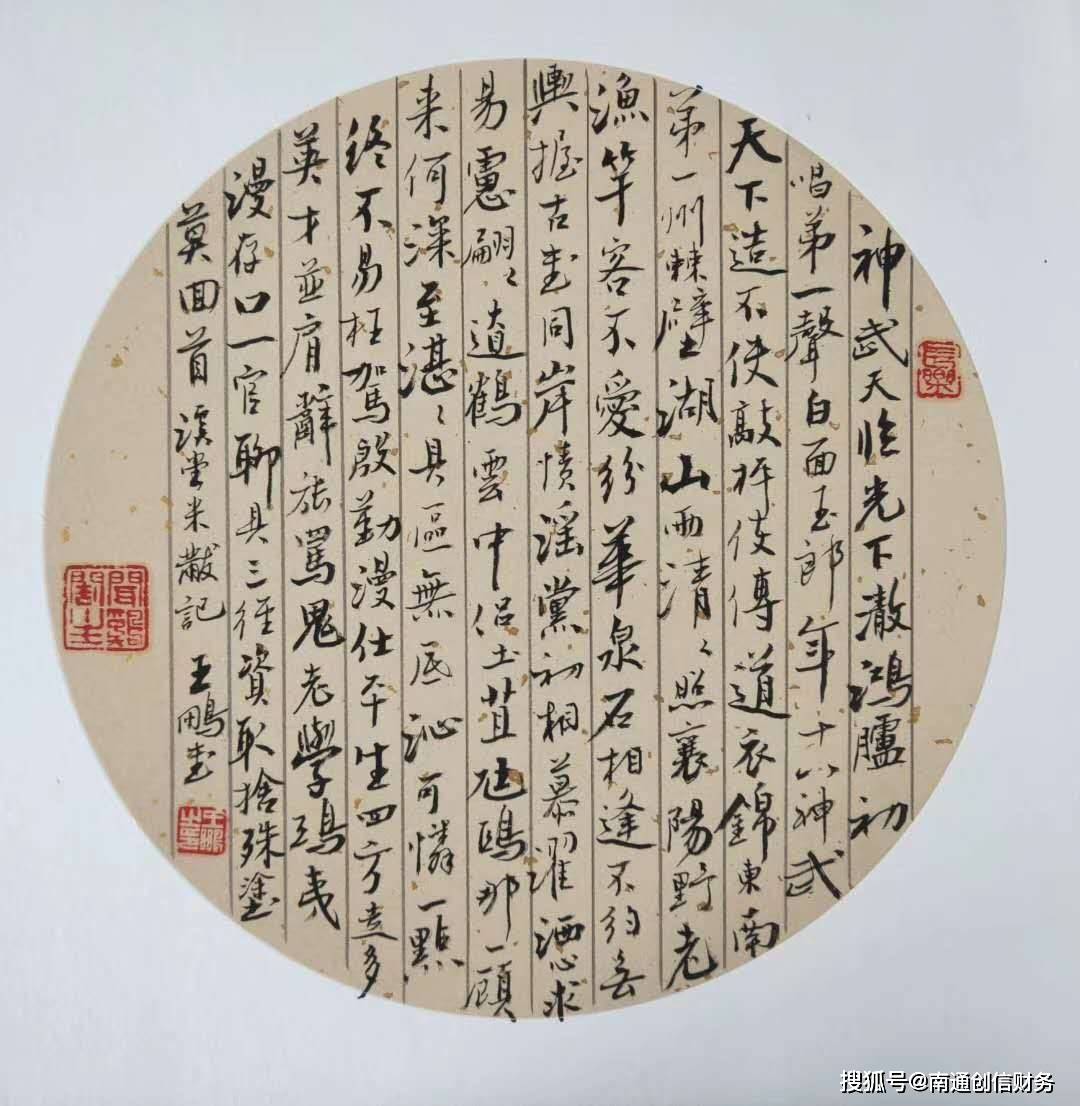 神武天臨光下澈鴻臚初
唱第一聲白面玉郎年十八神武
天下造不使敲枰使傳道衣錦東南
第一州棘璧湖山兩清々照襄陽野老
漁竿客不愛紛華泉石相逢不約無
輿握古書同岸幘淫黨初相慕濯洒心求
易慮翩々遼鶴雲中侶土苴尫鴟那一顧
来何深至湛々具區無底沚可憐一點
終不易枉駕殷勤漫仕平生四方走多
英才並肩辭能罵鬼老學鴟夷
漫存口一官聊具三徑資取捨殊塗
莫回首 溪堂米黻記 王鵬書
長樂
搜狐号@南通创信财务